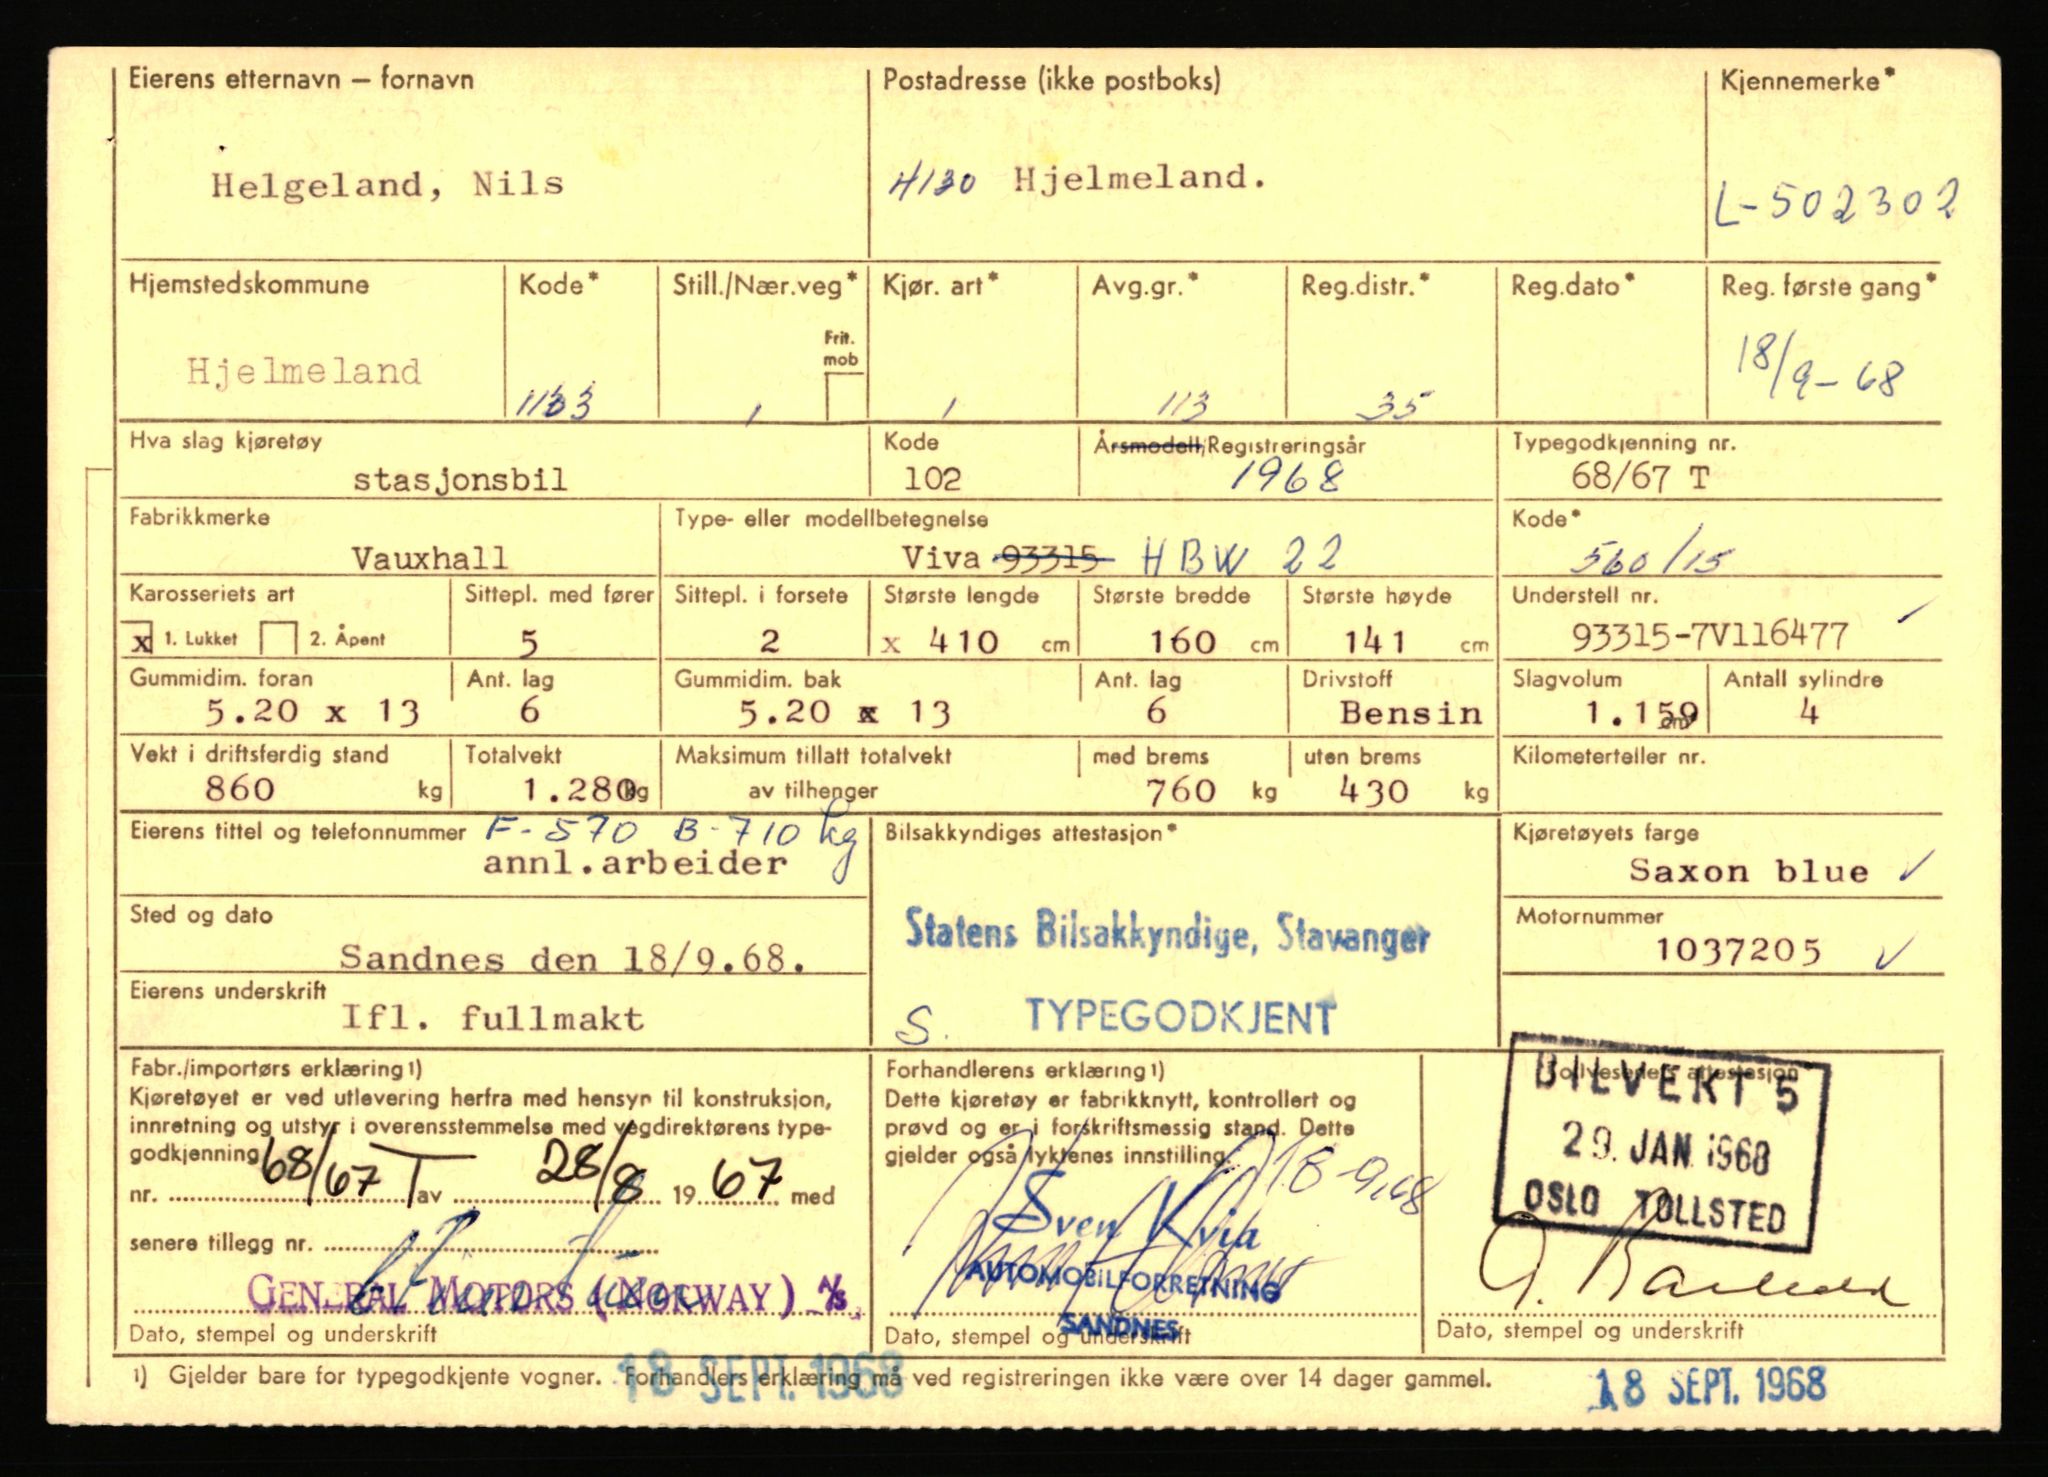 Eierens etternavn – fornavn
Postadresse (ikke postboks)
Kjennemerke*
Helgeland, Nils
4130 Hjelmeland.
L-502302
Hjemstedskommune
Kode*
Still./Nær.veg*
Kjør. art*
Avg.gr.*
Reg.distr.*
Reg.dato*
Reg. første gang*
Frit. mob
Hjelmeland
1133
1
1
113
35
18/9-68
Hva slag kjøretøy
Kode
Årsmodell/Registreringsår
Typegodkjenning nr.
stasjonsbil
102
1968
68/67 T
Fabrikkmerke
Type- eller modellbetegnelse
Kode*
Vauxhall
Viva 93315 HBW 22
560/15
Karosseriets art
Sittepl. med fører
Sittepl. i forsete
Største lengde
Største bredde
Største høyde
Understell nr.
x 1. Lukket 2. Åpent
5
2
x 410 cm
160 cm
141 cm
93315-7V116477
Gummidim. foran
Ant. lag
Gummidim. bak
Ant. lag
Drivstoff
Slagvolum
Antall sylindre
5.20 x 13
6
5.20 x 13
6
Bensin
1.159 cm³
4
Vekt i driftsferdig stand
Totalvekt
Maksimum tillatt totalvekt
med brems
uten brems
Kilometerteller nr.
860 kg
1.280 kg
av tilhenger
760 kg
430 kg
Eierens tittel og telefonnummer F-570 B-710 kg
Bilsakkyndiges attestasjon*
Kjøretøyets farge
annl.arbeider
Saxon blue
Sted og dato
Statens Bilsakkyndige, Stavanger
Motornummer
Sandnes den 18/9.68.
1037205
Eierens underskrift
Ifl. fullmakt
S. TYPEGODKJENT
Fabr./importørs erklæring 1)
Forhandlerens erklæring 1)
Tollvesenets attestasjon
Kjøretøyet er ved utlevering herfra med hensyn til konstruksjon,
innretning og utstyr i overensstemmelse med vegdirektørens type-
godkjenning
nr. 68/67 T av 28/8 1967 med
senere tillegg nr.
GENERAL MOTORS (NORWAY) A/S
Dato, stempel og underskrift
Dette kjøretøy er fabrikknytt, kontrollert og
prøvd og er i forskriftsmessig stand. Dette
gjelder også lyktenes innstilling.
18-9.68
Sven Kvia
AUTOMOBILFORRETNING
SANDNES
Dato, stempel og underskrift
BILVEKT 5
29. JAN 1968
OSLO TOLLSTED
Dato, stempel og underskrift
1) Gjelder bare for typegodkjente vogner. Forhandlers erklæring må ved registreringen ikke være over 14 dager gammel.
18 SEPT. 1968
18 SEPT. 1968